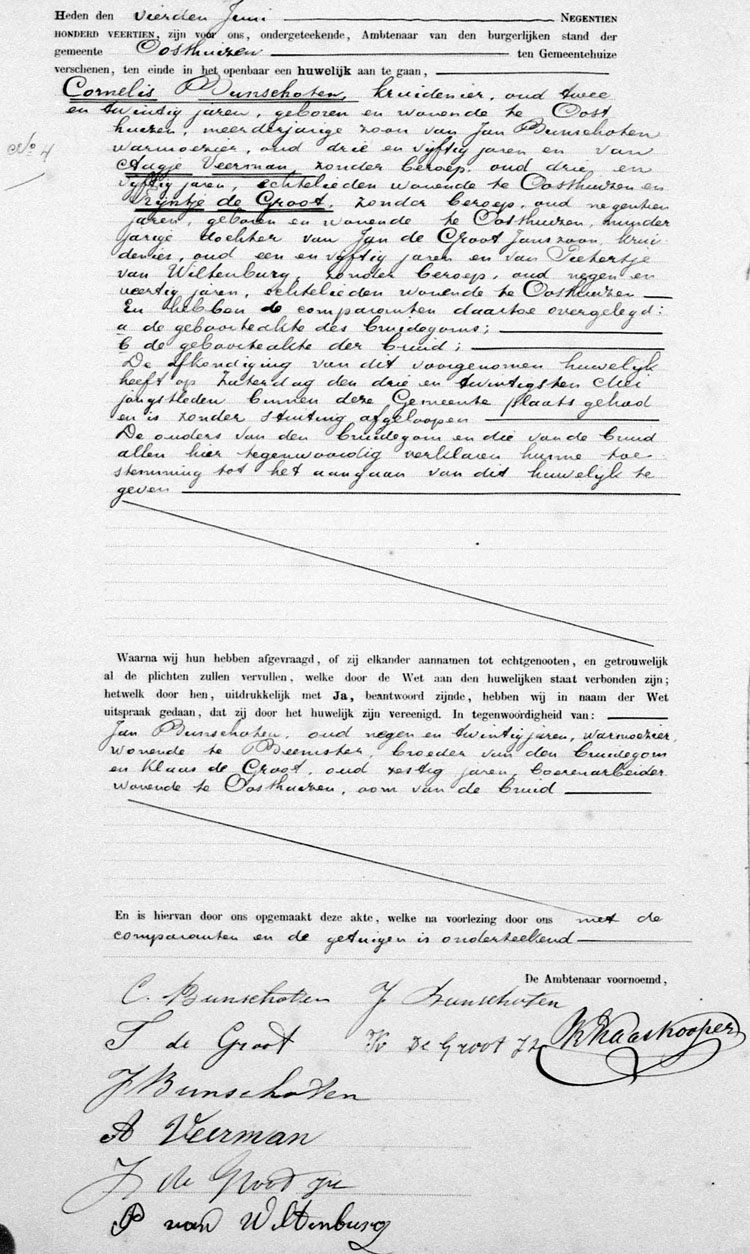 Heden den vierden Juni NEGENTIEN
HONDERD VEERTIEN, zijn voor ons, ondergeteekende, Ambtenaar van den burgerlijken stand der
gemeente Oosthuizen ten Gemeentehuize
verschenen, ten einde in het openbaar een huwelijk aan te gaan,
Cornelis Bunschoten, kruidenier, oud twee
en twintig jaren, geboren en wonende te Oost
huizen, meerderjarige zoon van Jan Bunschoten
No 4
warmoezier, oud drie en vijftig jaren en van
Aagje Veerman, zonder beroep, oud drie en
vijftig jaren, echtelieden wonende te Oosthuizen en
Trijntje de Groot, zonder beroep, oud negentien
jaren, geboren en wonende te Oosthuizen, minder
jarige dochter van Jan de Groot Janszoon, krui
denier, oud een en vijftig jaren en van Pietertje
van Wiltenburg, zonder beroep, oud negen en
veertig jaren, echtelieden wonende te Oosthuizen
En hebben de comparanten daartoe overgelegd:
a de geboorteakte des bruidegoms;
b de geboorteakte der bruid;
De afkondiging van dit voorgenomen huwelijk
heeft op Zaterdag den drie en twintigsten Mei
jongstleden binnen deze Gemeente plaats gehad
en is zonder stuiting afgeloopen
De ouders van den bruidegom en die van de bruid
allen hier tegenwoordig verklaren hunne toe
stemming tot het aangaan van dit huwelijk te
geven
Waarna wij hun hebben afgevraagd, of zij elkander aannamen tot echtgenooten, en getrouwelijk
al de plichten zullen vervullen, welke door de Wet aan den huwelijken staat verbonden zijn;
hetwelk door hen, uitdrukkelijk met Ja, beantwoord zijnde, hebben wij in naam der Wet
uitspraak gedaan, dat zij door het huwelijk zijn vereenigd. In tegenwoordigheid van:
Jan Bunschoten, oud negen en twintig jaren, warmoezier,
wonende te Beemster, broeder van den bruidegom
en Klaas de Groot, oud zestig jaren, boerenarbeider
wonende te Oosthuizen, oom van de bruid
En is hiervan door ons opgemaakt deze akte, welke na voorlezing door ons met de
comparanten en de getuigen is onderteekend
De Ambtenaar voornoemd,
C. Bunschoten J Bunschoten
T de Groot K de Groot Jz Kaaskooper
J Bunschoten
A Veerman
J de Groot Jz
P van Wiltenburg